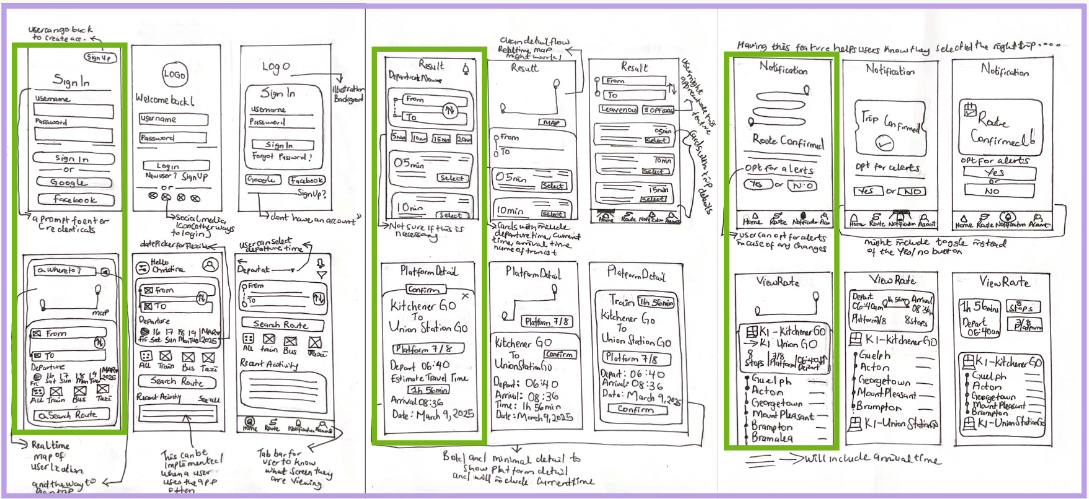 user can go back
to create acc.
Sign Up
Sign In
username
Password
Sign In
or
Google
facebook
a prompt to enter
Credentials
LOGO
Welcome back!
username
Password
Login
New user? SignUp
or
social media
icon (other ways
to login)
LOGO
Illustration
Background
Sign In
username
Password
Sign In
Forgot Password?
Google
Facebook
SignUp?
"dont have an account"
where to?
map
From
To
Departure
16 17 18 19 MAR
Fri Sat Sun Mon 2025
All Train Bus Taxi
Search Route
Real time
map of
user location
and the way to
date picker for flexible
Hello
Christine
From
To
Departure
16 17 18 19 MAR
Fri Sat Sun Mon 2025
All Train Bus Taxi
Search Route
Recent Activity See all
This can be
implemented
when a user
uses the app
often
user can select
departure time
Depart at
From
To
Search Route
All train Bus Taxi
Recent Activity
Home Route Notification Account
Tab bar for
user to know
what screen they
are viewing
Result
From
To
5min 10min 15min 20min
05min
Select
10min
Select
Not sure if this is
necessary
clean detail flow
Real time map
might work!
Result
MAP
From
To
05min
Select
10min
Cards with include
departure time, current
time, arrival time
name of transit
Result
From
To
Leave now
Options
05min
Select
10min
Select
15min
Select
Home Route Notification
Cards with trip
details
Platform Detail
Confirm
X
Kitchener GO
To
Union Station GO
Platform 7/8
Depart 06:40
Estimate Travel Time
1h 56min
Arrival 08:36
Date: March 9, 2025
Platform Detail
Platform 7/8
Kitchener GO
To
Confirm
Union Station GO
Depart: 06:40
Arrival: 08:36
Time: 1h 56min
Date: March 9, 2025
Platform Detail
Train 1h 56min
Kitchener GO
To
Union Station GO
Platform 7/8
Depart: 06:40
Arrival: 08:36
Date: March 9, 2025
Confirm
Bold and minimal detail to
show platform detail
and will include current time
Having this feature helps users know they selected the right trip.....
Notification
Route Confirmed
Opt for alerts
Yes or NO
Home Route Notification Acc
user can opt for alerts
incase of any changes
Notification
Trip Confirmed
Opt for alerts
Yes or NO
Home Route Notification Account
might include toggle instead
of the Yes/no button
Notification
Route
Confirmed!
opt for alerts
Yes
or
NO
Home Route Notification Account
View Route
K1-Kitchener GO
K1 Union GO
8
stops
7/8
Platform
06:40
Depart
Guelph
Acton
Georgetown
Mount Pleasant
Brampton
Bramalea
View Route
Depart
06:40am
1h 56min
Arrival
08:36
Platform 7/8 8 stops
K1-Kitchener GO
Guelph
Acton
Georgetown
Mount Pleasant
Brampton
K1-Union Station GO
View Route
1h 56mins
8
stops
Depart
06:40am
7/8
Platform
K1-Kitchener GO
Guelph
Acton
Georgetown
Mount Pleasant
Brampton
K1-Union Station GO
will include arrival time